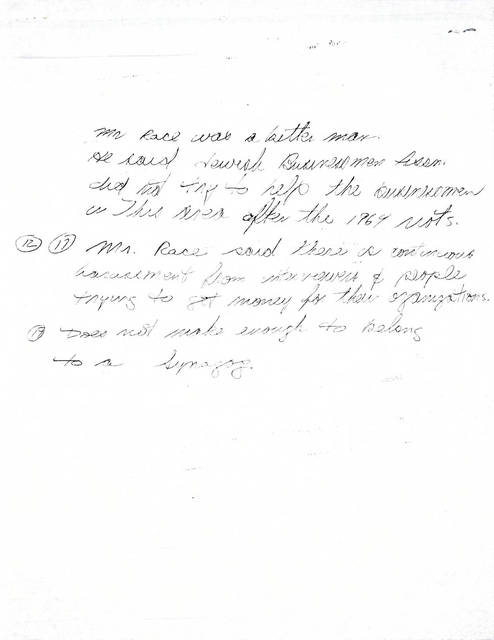 Mr Race was a better man.
He said Jewish Businessmen Assn.
did not try to help the Businessmen
in This Area after the 1964 riots.
(12) (17) Mr. Race said there is continuous
harassment from interviewers & people
trying to get money for their organizations.
(19) Does not make enough to belong
to a Synagog.